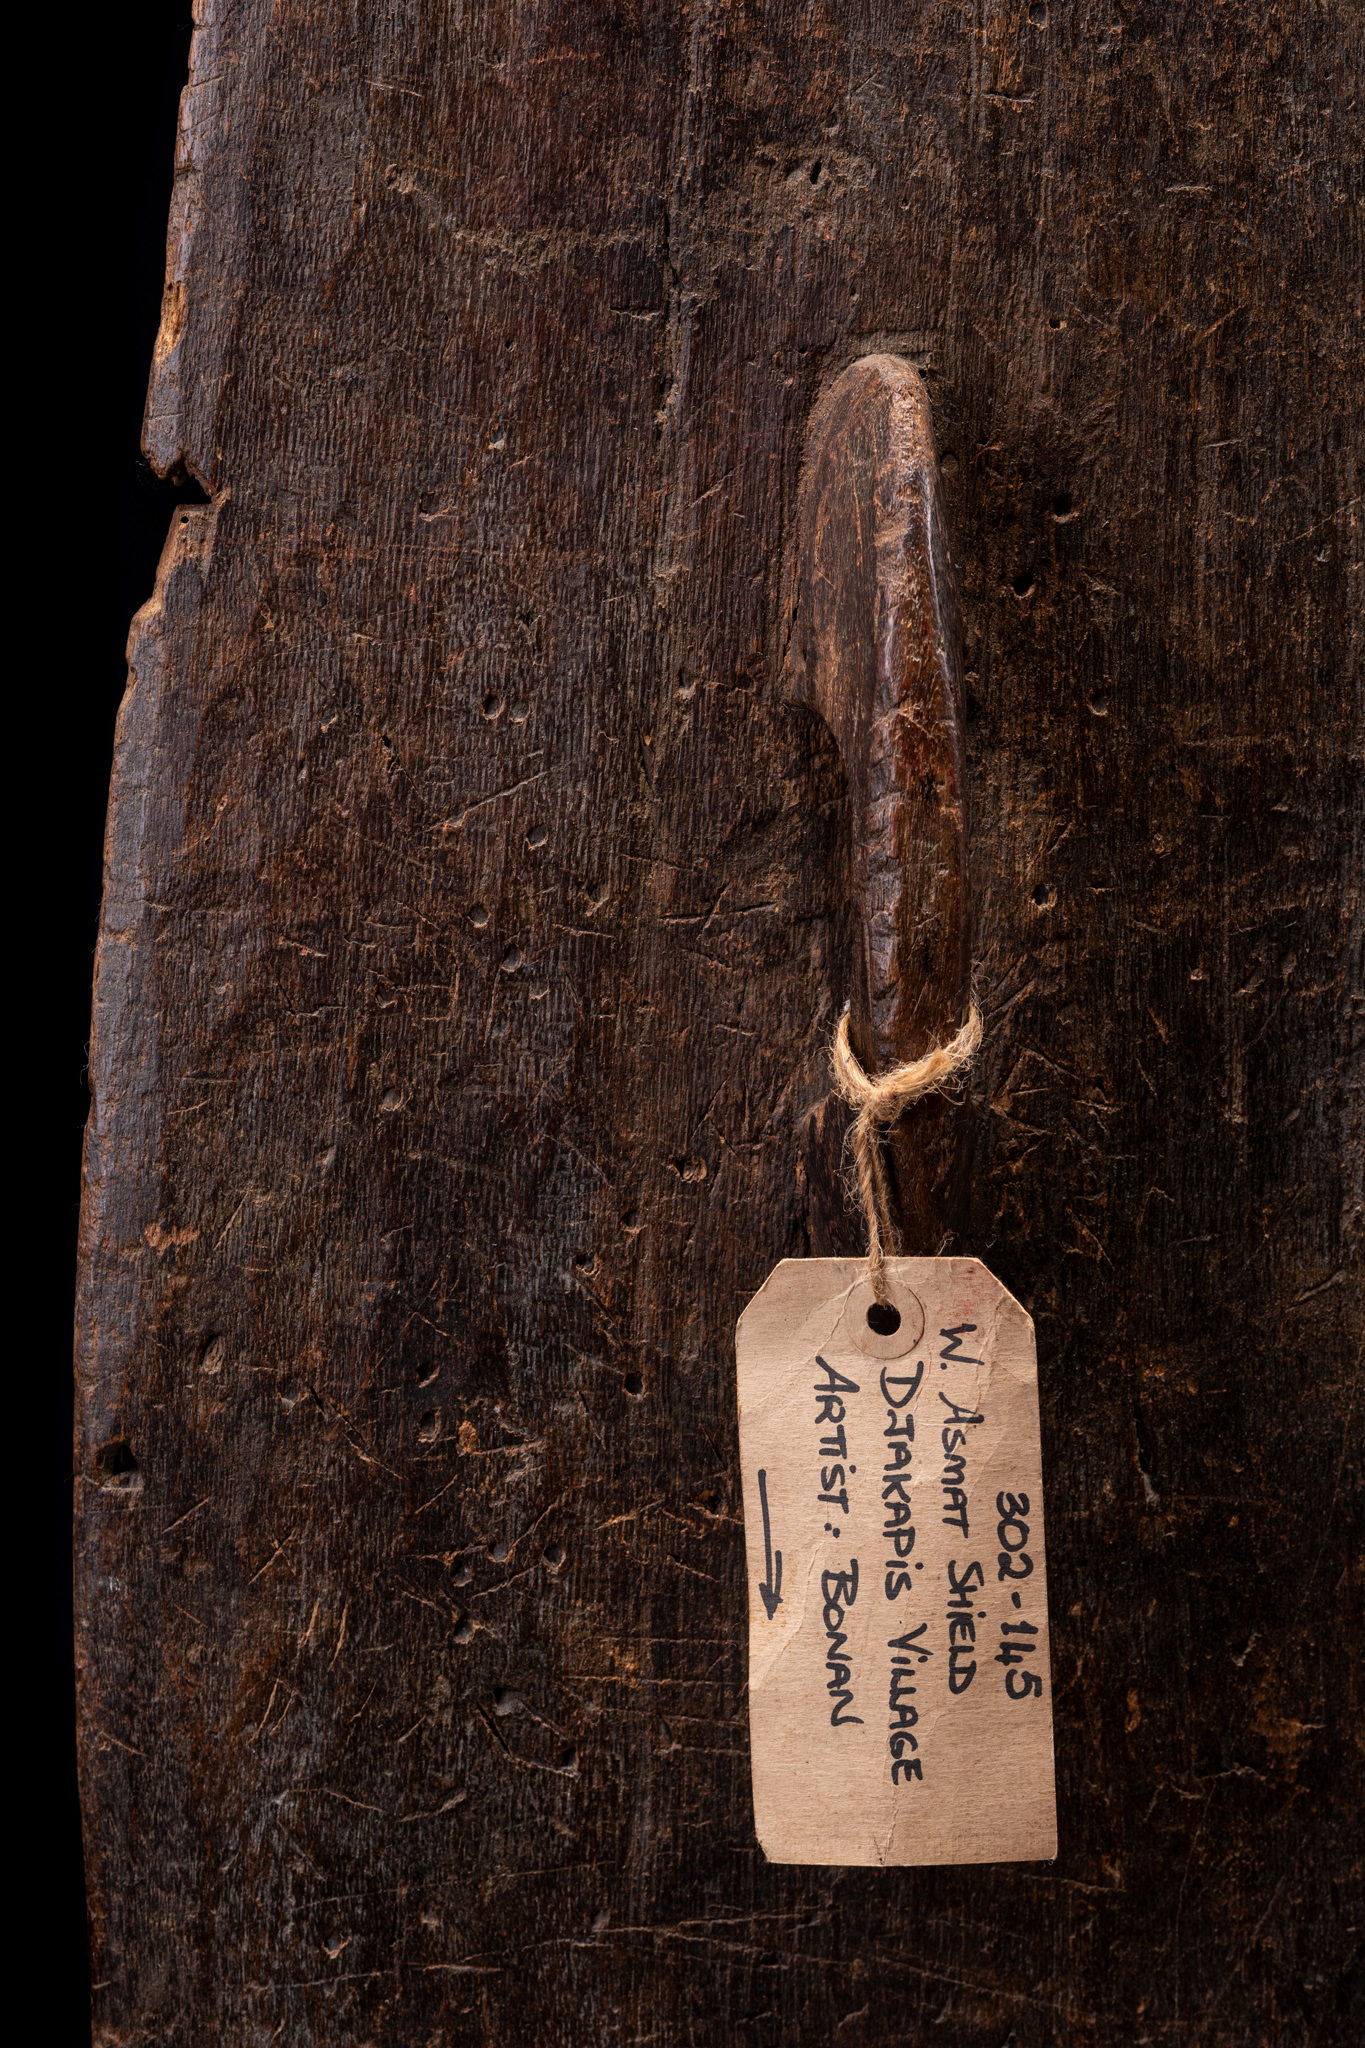 302-145
W. ASMAT SHIELD
DJAKAPIS VILLAGE
ARTIST: BONAN